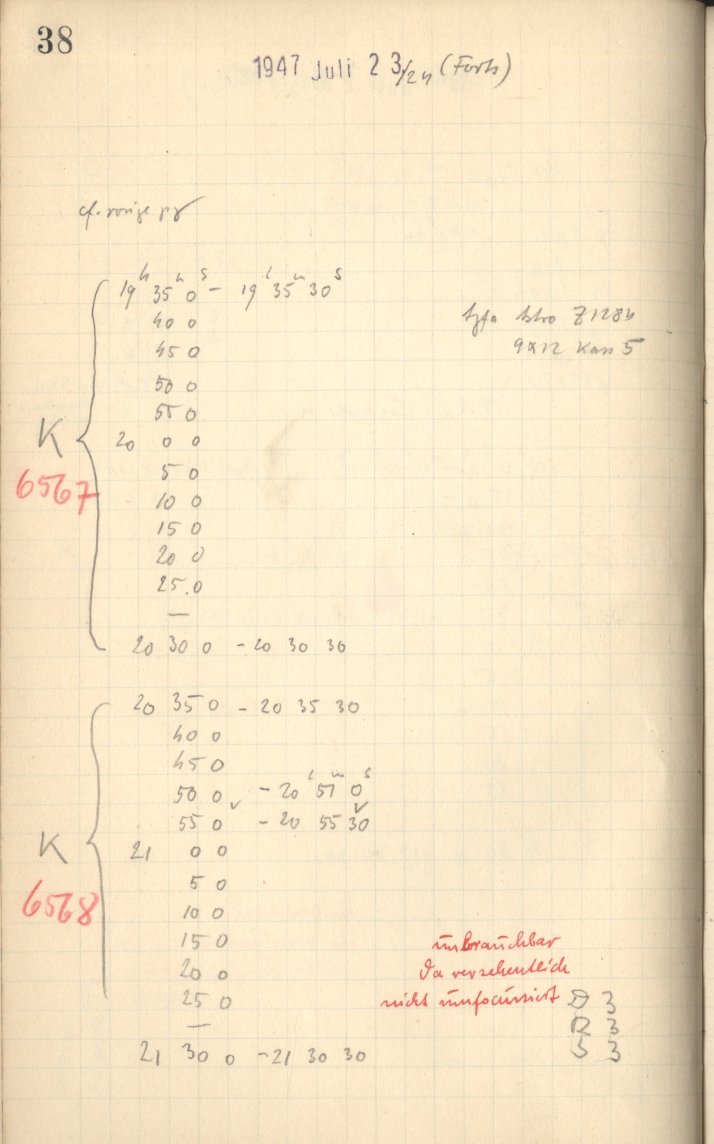 38
1947 Juli 23/24 (Forts)
cf. vorige pg
19h 35m 0s - 19h 35m 30s
40 0
Agfa Astro Z1284
45 0
9x12 Kass 5
50 0
55 0
K
20 0 0
6567
5 0
10 0
15 0
20 0
25.0
—
20 30 0 - 20 30 30
20 35 0 - 20 35 30
40 0
45 0
50 0 - 20h 51m 0s
55 0 - 20 55 30
K
21 0 0
6568
5 0
10 0
15 0
unbrauchbar
20 0
da versehentlich
25 0
nicht umfocussiert
D 3
—
R 3
21 30 0 - 21 30 30
S 3